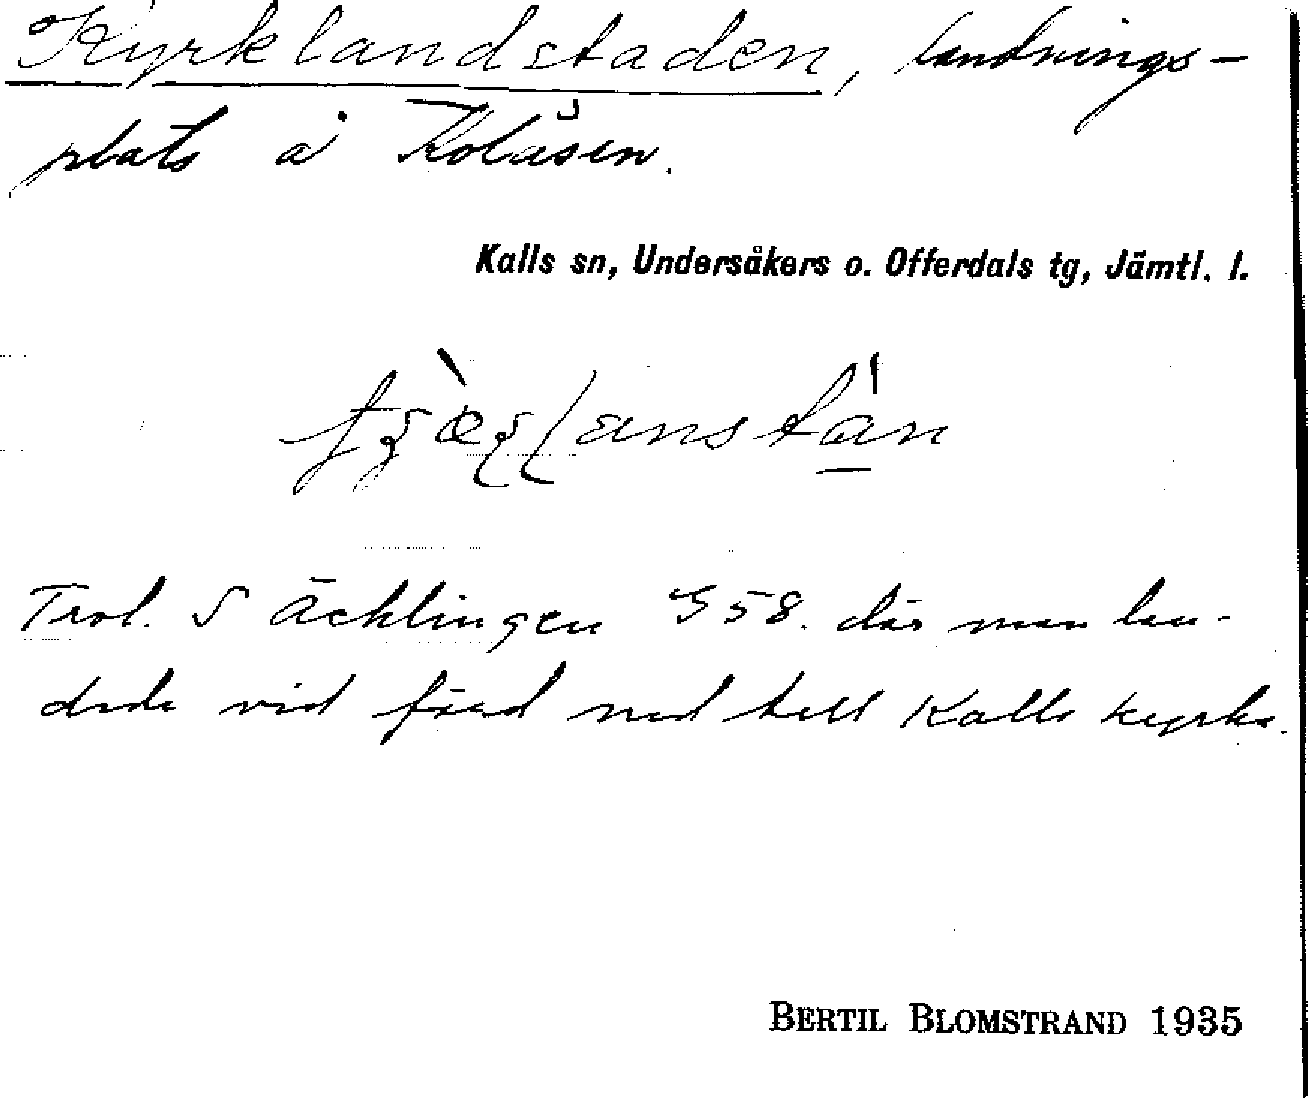 Kyrklandstaden, landnings-
plats å Kolåsen.
Kalls sn, Undersåkers o. Offerdals tg, Jämtl. l.
Trol. S Äcklingen G58. där man lan-
dade vid färd ned till Kalls kyrka.
BERTIL BLOMSTRAND 1935